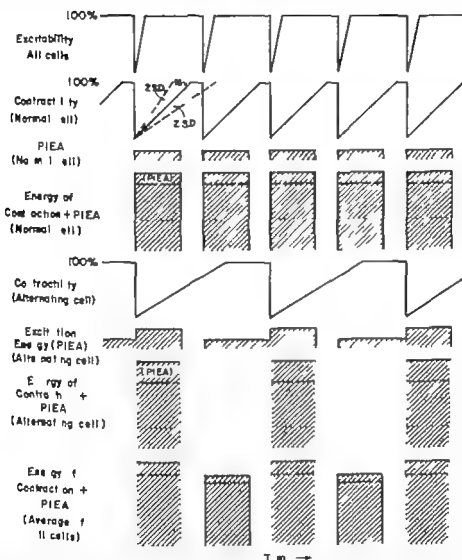 100%
Excitability
All cells
100%
(Normal ell)
2 S.D
2 S.D
PIEA
(No m l ell)
(PIEA)
Energy of
Cont action + PIEA
(Normal cell)
100%
Co tractility
(Alternating cell)
Excit tion
Ene gy (PIEA)
(Alte nating cell)
(PIEA)
E ergy of
Contra ti +
PIEA
(Alternating cell)
Ene gy f
Contraction +
PIEA
(Average f
ll cells)
T m